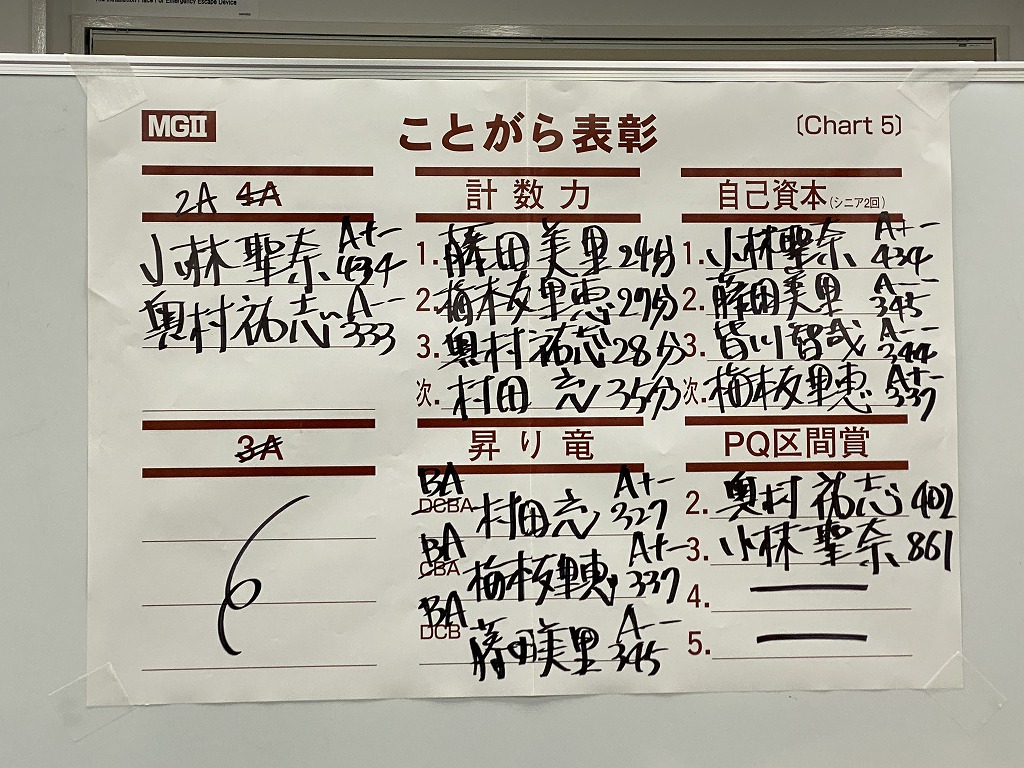 The Installation Place For Emergency Escape Device
MGII
ことがら表彰
〔Chart 5〕
2A 4A
小林聖奈 A+- 434
奥村祐志 A-- 333
計数力
1. 藤田美里 24分
2. 梅板里恵 27分
3. 奥村祐志 28分
次. 村田充 35分
自己資本(シニア2回)
1. 小林聖奈 A+- 434
2. 藤田美里 A-- 345
3. 皆川智哉 A-- 344
次. 梅板里恵 A+- 337
3A
昇り竜
BA DCBA 村田充 A+- 327
BA CBA 梅板里恵 A+- 337
BA DCB 藤田美里 A-- 345
PQ区間賞
2. 奥村祐志 402
3. 小林聖奈 861
4.
5.